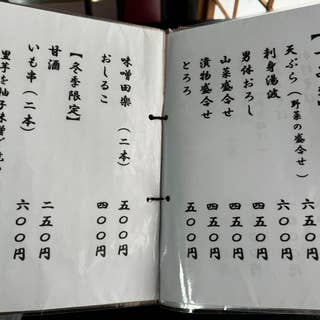 天ぷら(野菜の盛合せ) 六五〇円
刺身湯波 六〇〇円
男体おろし 五五〇円
山菜盛合せ 五五〇円
漬物盛合せ 五五〇円
とろろ 五〇〇円
味噌田楽(二本) 五〇〇円
おしるこ 四〇〇円
【冬季限定】
甘酒 二五〇円
いも串(二本) 六〇〇円
里芋を柚子味噌